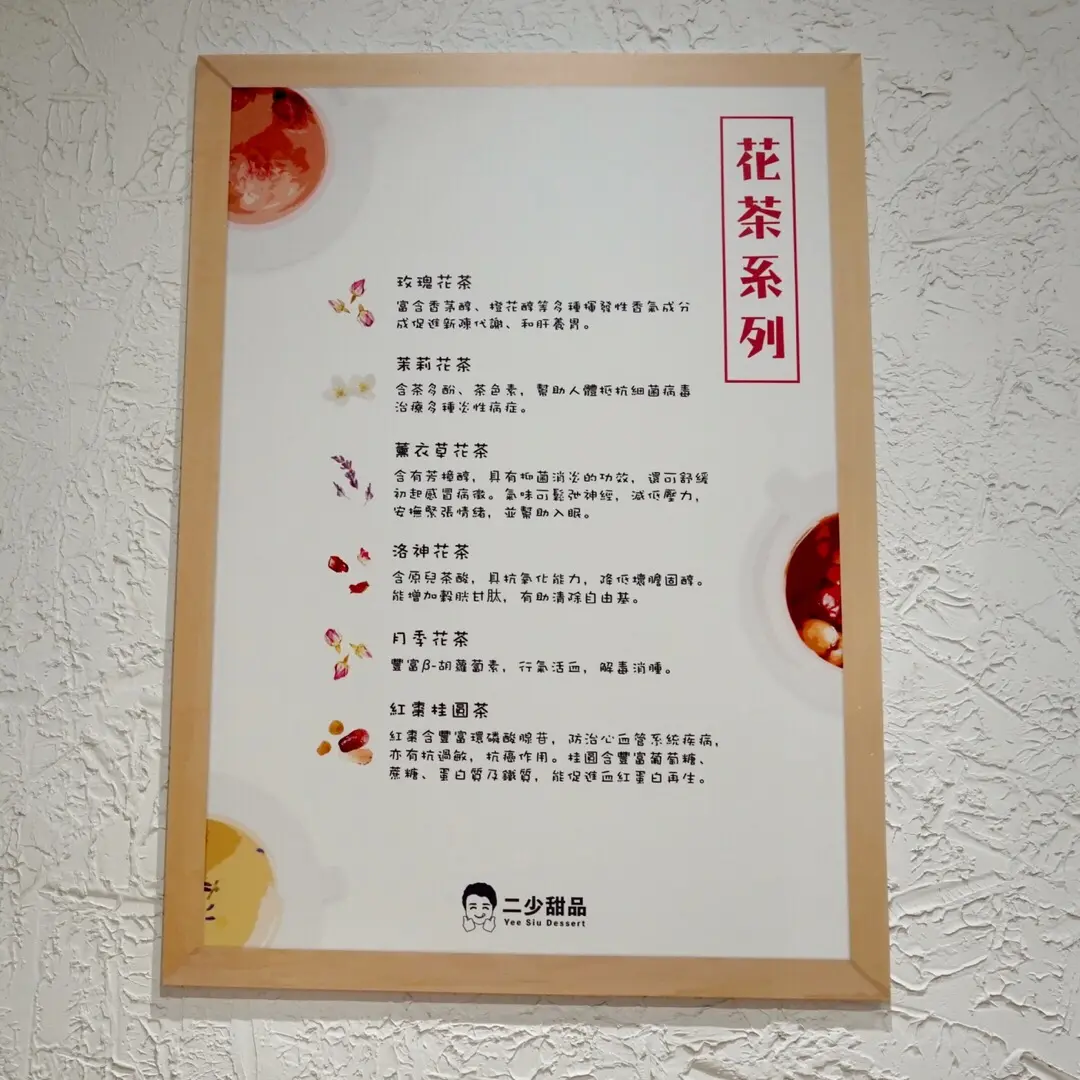 花茶系列
玫瑰花茶
富含香茅醇、橙花醇等多種揮發性香氣成分
成促進新陳代謝、和肝養胃。
茉莉花茶
含茶多酚、茶色素，幫助人體抵抗細菌病毒
治療多種炎性病症。
薰衣草花茶
含有芳樟醇，具有抑菌消炎的功效，還可舒緩
初起感冒病徵。氣味可鬆弛神經，減低壓力，
安撫緊張情緒，並幫助入眠。
洛神花茶
含原兒茶酸，具抗氧化能力，降低壞膽固醇。
能增加穀胱甘肽，有助清除自由基。
月季花茶
豐富β-胡蘿蔔素，行氣活血，解毒消腫。
紅棗桂圓茶
紅棗含豐富環磷酸腺苷，防治心血管系統疾病，
亦有抗過敏，抗癌作用。桂圓含豐富葡萄糖、
蔗糖、蛋白質及鐵質，能促進血紅蛋白再生。
二少甜品
Yee Siu Dessert